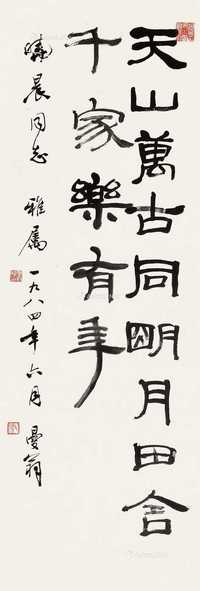 天山萬古同明月田舍
千家樂有年
曉晨同志 雅属 一九八四年六月 曼翁